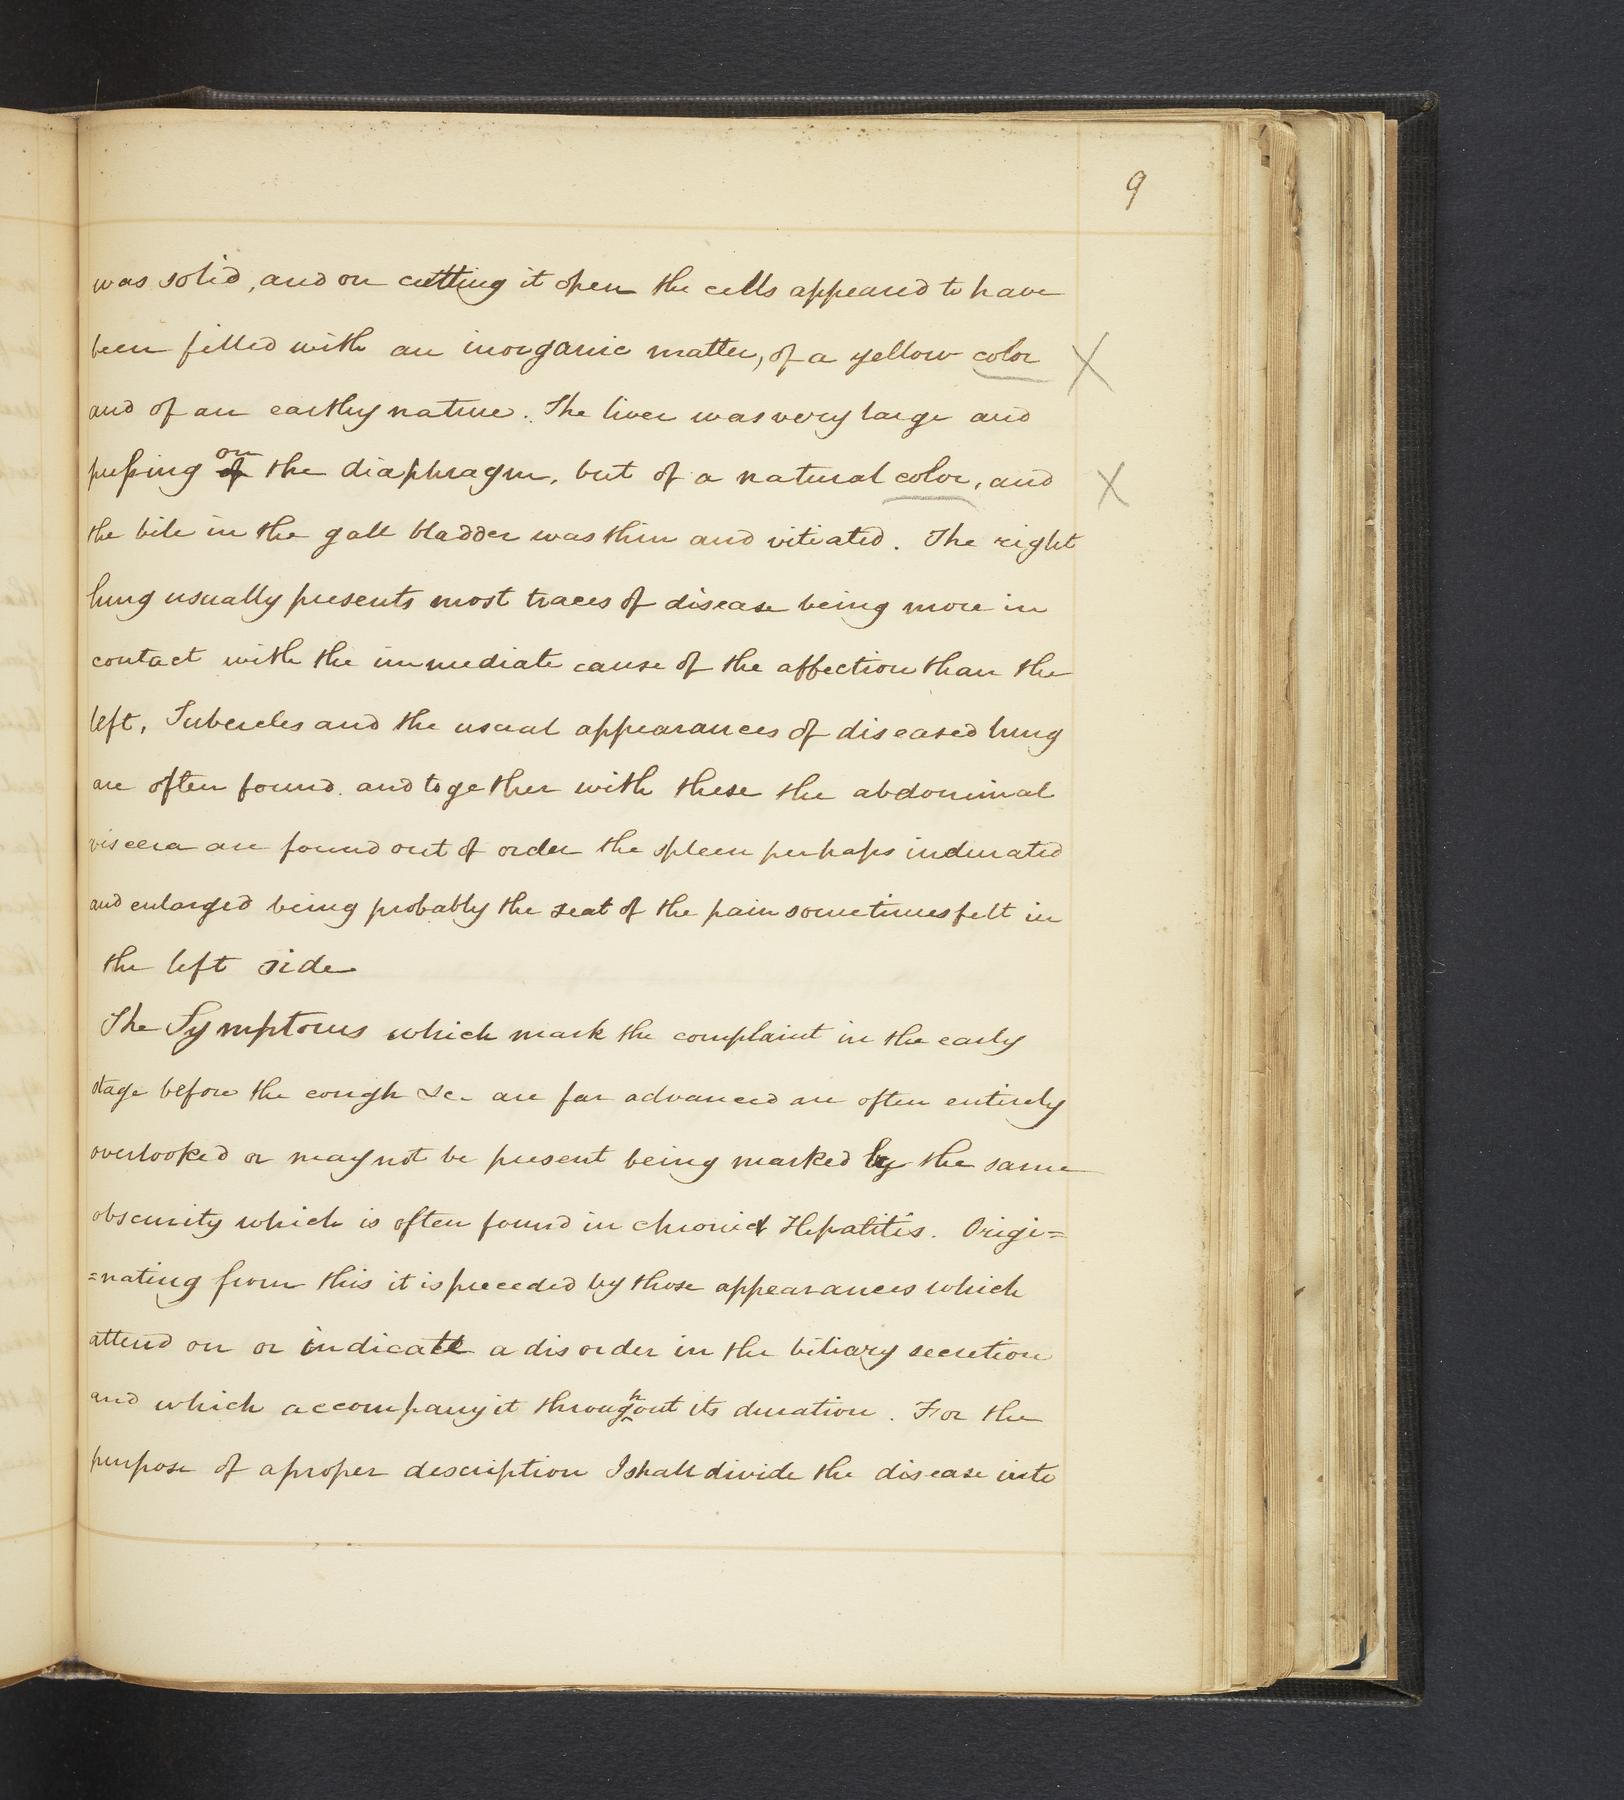 9
was solid, and on cutting it open the cells appeared to have
been filled with an inorganic matter, of a yellow color X
and of an earthy nature. The liver was very large and
pressing of on the diaphragm, but of a natural color, and X
the bile in the gall bladder was thin and vitiated. The right
lung usually presents most traces of disease being more in
contact with the immediate cause of the affection than the
left. Tubercles and the usual appearances of diseased lung
are often found. and together with these the abdominal
viscera are found out of order the spleen perhaps indurated
and enlarged being probably the seat of the pain sometimes felt in
the left side
The Symptoms which mark the complaint in the early
stage before the cough &c. are far advanced are often entirely
overlooked or may not be present being marked by the same
obscurity which is often found in chronic Hepatitis. Origi=
=nating from this it is preceded by those appearances which
attend on or indicate a disorder in the biliary secretion
and which accompany it throughout its duration. For the
purpose of a proper description I shall divide the disease into